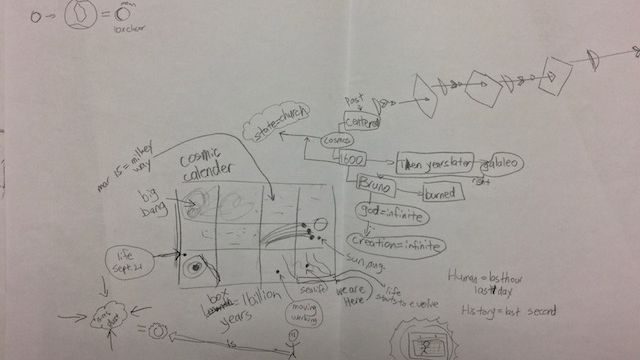 past
state=church
centered
cosmos
1600
Ten years later
galaleo
right
Bruno
burned
god=infinite
creation=infinite
mar 15 = milkey
way
cosmic
calender
big
bang
life
Sept. 21
sun, Aug.
box
1 billion
years
moving
working
sealife
we are
Here
life
starts to evolve
Human = last hour
last day
History = last second
is